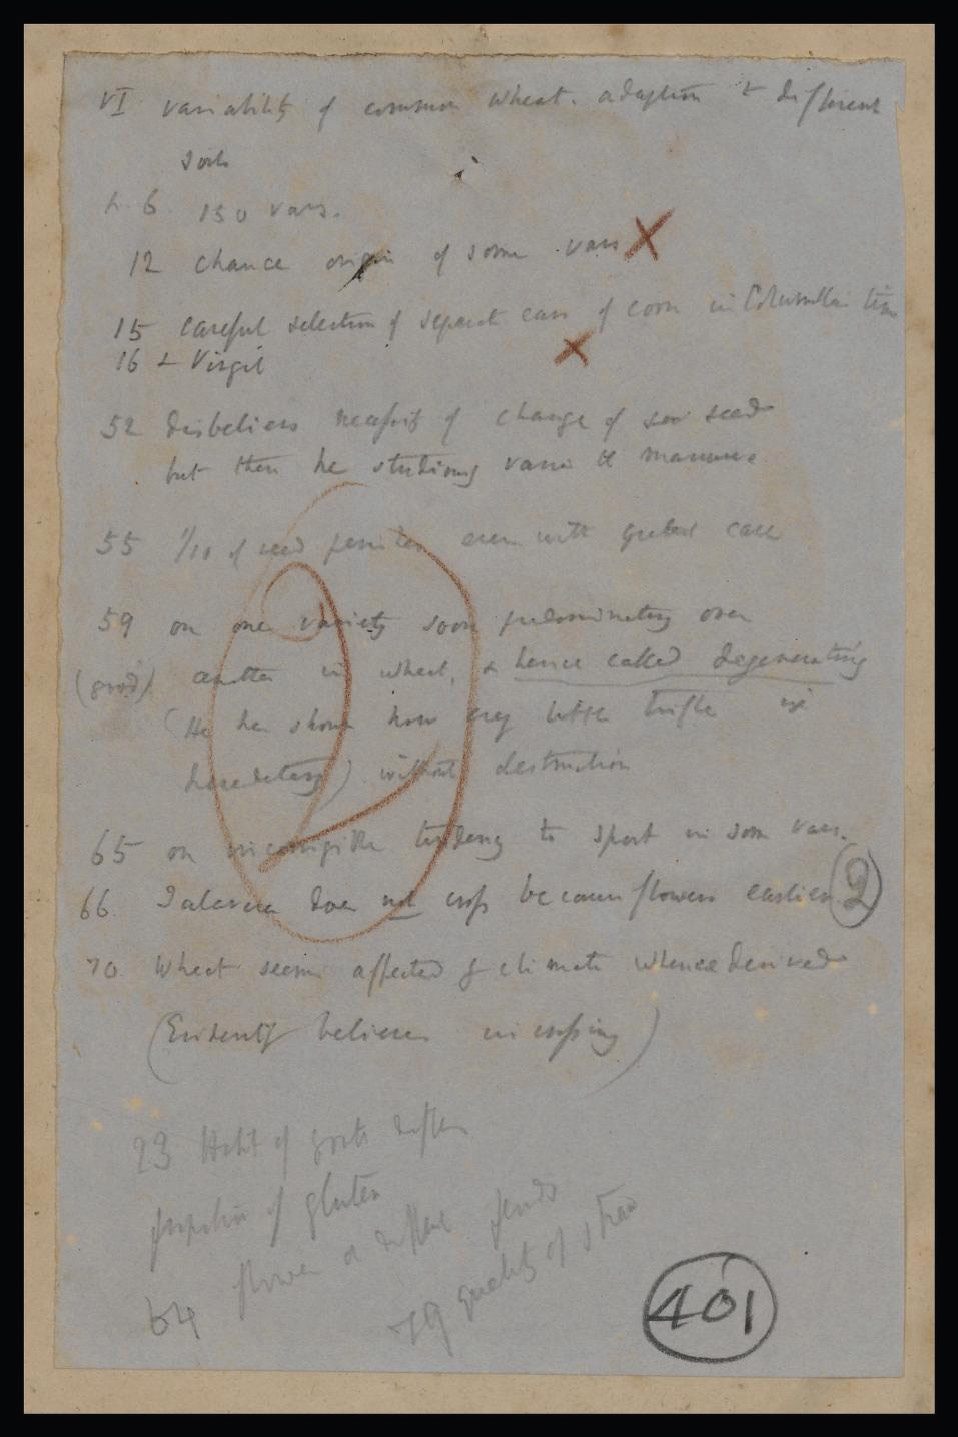 VI variability of common wheat. adaption to different
soils
p. 6. 150 vars.
12 chance origin of some vars
15 careful selection of separate ears of corn in Columella time
16 & Virgil
52 disbelieves necessity of change of seed
but then he studiously varies manure
55 1/10 of seed perishes even with greatest care
59 on one variety soon predominating over
(good) another in wheat, & hence called degenerating
(He has shown how every little trifle is
hereditary) without destruction
65 on incorrigible tendency to sport in some vars.
66. Talavera does not cross because flowers earlier (2)
70 Wheat seems affected by climate whence derived
(Evidently believes in crossing)
23 Habit of growth differs
proportion of gluten
64 flowers at different periods
79 quality of straw
2
401